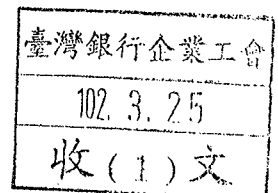 臺灣銀行企業工會
102. 3. 25
收(1)文